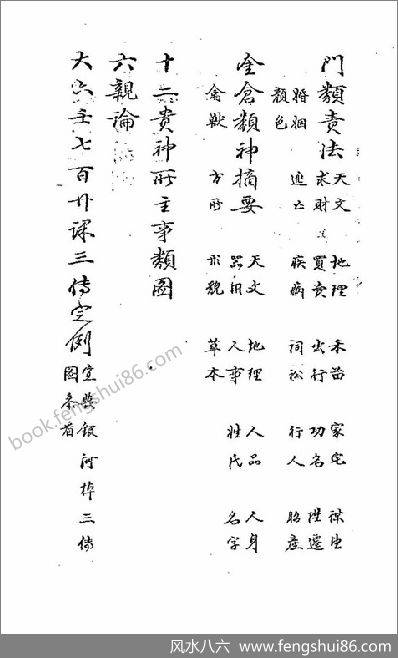 門類責法 天文 地理 禾苗 家宅 謀生
求財 買賣 出行 功名 陞遷
婚姻 逃亡 疾病 詞訟 行人
顏色
金倉類神摘要 天文 地理 人品 人身
器用 人事 姓氏 名字
禽獸 方所 形貌 草木
十二貴神所主事類圖
六親論
大六壬七百廿課三傳定例
三傳
book.fengshui86.com
风水八六 www.fengshui86.com